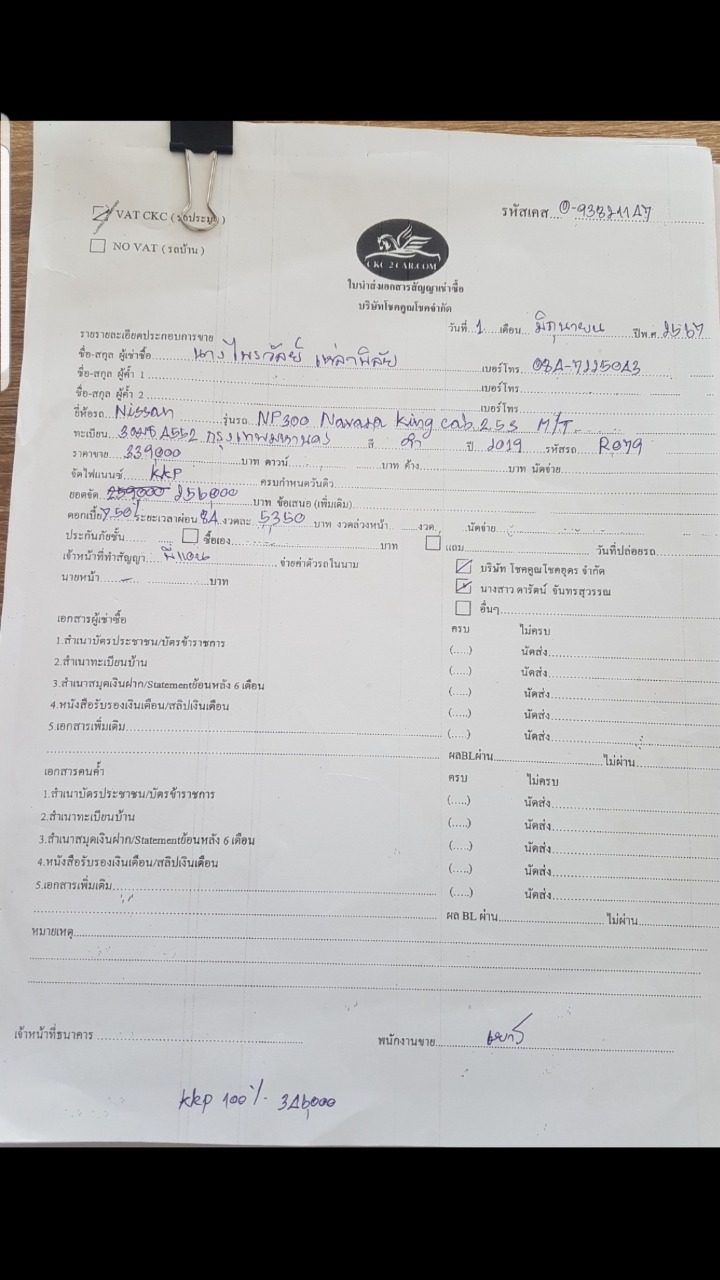 VAT CKC ( รถประมูล )
รหัสเคส
NO VAT ( รถบ้าน )
CKC 2 CAR.COM
ใบนำส่งเอกสารสัญญาเช่าซื้อ
บริษัทโชคคูณโชคจำกัด
วันที่ 1 เดือน มิถุนายน ปีพ.ศ. 2567
รายรายละเอียดประกอบการขาย
ชื่อ-สกุล ผู้เช่าซื้อ นางไพรวัลย์ เหล่าพิลัย เบอร์โทร
ชื่อ-สกุล ผู้ค้ำ 1 เบอร์โทร
ชื่อ-สกุล ผู้ค้ำ 2 เบอร์โทร
ยี่ห้อรถ Nissan รุ่นรถ NP300 Navara King cab 2.5 S M/T
ทะเบียน กรุงเทพมหานคร สี ดำ ปี 2019 รหัสรถ R079
ราคาขาย 339000 บาท ดาวน์ บาท ค้าง บาท นัดจ่าย
จัดไฟแนนซ์ KKP ครบกำหนดวันดิว
ยอดจัด 259000 256000 บาท ข้อเสนอ (เพิ่มเติม)
ดอกเบี้ย 7.50% ระยะเวลาผ่อน 84 งวดละ 5350 บาท งวดล่วงหน้า งวด นัดจ่าย
ประกันภัยชั้น ซื้อเอง บาท แถม วันที่ปล่อยรถ
เจ้าหน้าที่ทำสัญญา จ่ายค่าตัวรถในนาม บริษัท โชคคูณโชคอุดร จำกัด
นายหน้า บาท นางสาว ดารัตน์ จันทรสุวรรณ
อื่นๆ
เอกสารผู้เช่าซื้อ ครบ ไม่ครบ
1.สำเนาบัตรประชาชน/บัตรข้าราชการ (.....) นัดส่ง
2.สำเนาทะเบียนบ้าน (.....) นัดส่ง
3.สำเนาสมุดเงินฝาก/Statementย้อนหลัง 6 เดือน (.....) นัดส่ง
4.หนังสือรับรองเงินเดือน/สลิปเงินเดือน (.....) นัดส่ง
5.เอกสารเพิ่มเติม (.....) นัดส่ง
ผลBLผ่าน ไม่ผ่าน
เอกสารคนค้ำ ครบ ไม่ครบ
1.สำเนาบัตรประชาชน/บัตรข้าราชการ (.....) นัดส่ง
2.สำเนาทะเบียนบ้าน (.....) นัดส่ง
3.สำเนาสมุดเงินฝาก/Statementย้อนหลัง 6 เดือน (.....) นัดส่ง
4.หนังสือรับรองเงินเดือน/สลิปเงินเดือน (.....) นัดส่ง
5.เอกสารเพิ่มเติม (.....) นัดส่ง
ผล BL ผ่าน ไม่ผ่าน
หมายเหตุ
เจ้าหน้าที่ธนาคาร พนักงานขาย
kkp 100% 346000